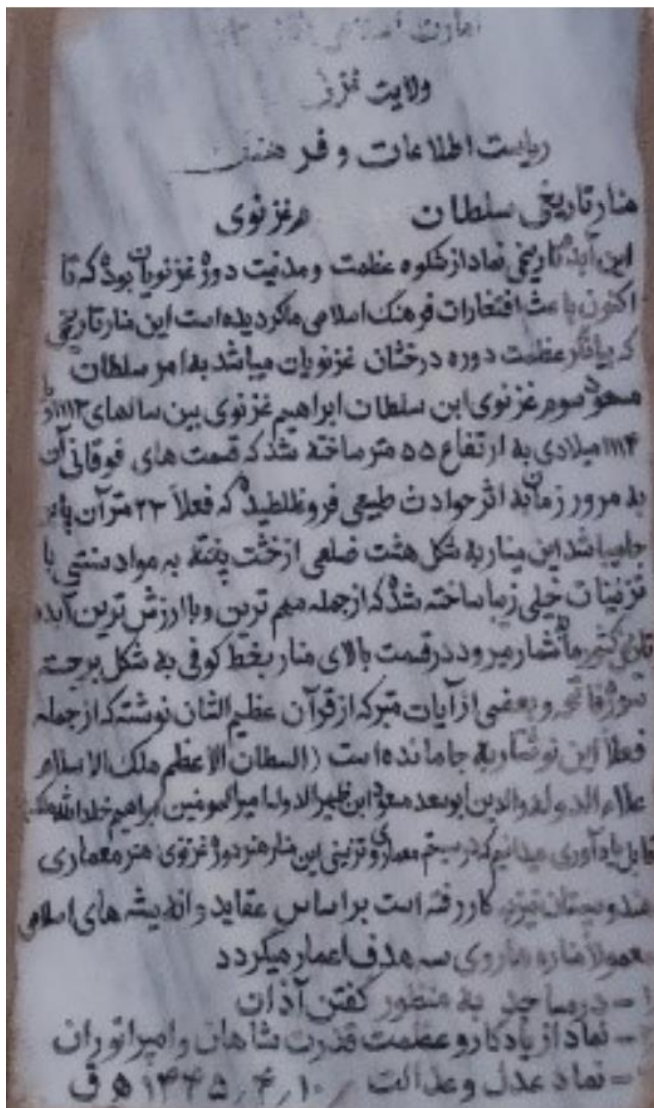 امارت اسلامی
ولایت غزنی
ریاست اطلاعات و فرهنگ
منار تاریخی سلطان م غزنوی
این آبدهٔ تاریخی نماد از شکوه عظمت و مدنیت دورهٔ غزنویان بوده که تا
اکنون باعث افتخارات فرهنگ اسلامی ما گردیده است این منار تاریخی
که بیانگر عظمت دوره درخشان غزنویان میباشد به امر سلطان
مسعود سوم غزنوی ابن سلطان ابراهیم غزنوی بین سالهای ۱۱۱۳
۱۱۱۴ میلادی به ارتفاع ۵۵ متر ساخته شد که قسمت های فوقانی آن
به مرور زمان به اثر حوادث طبیعی فرو غلطیده که فعلاً ۲۳ متر آن پا بر
جا میباشد این مینار به شکل هشت ضلعی از خشت پخته به مواد سنتی با
تزئینات خیلی زیبا ساخته شده که از جمله مهم ترین و با ارزش ترین آبده
کشور ما بشمار میرود در قسمت بالای منار بخط کوفی به شکل برجسته
سوره فاتحه و بعضی از آیات متبرکه از قرآن عظیم الشان نوشته که از جمله
فعلاً این نوشتار به جا مانده است (السطان الاعظم ملک الاسلام
علاء الدوله والدین ابو سعد مسعود ابن ظهیر الدوله امیر المومنین ابراهیم خلد الله ملکه
قابل یادآوری میدانیم که در سیستم معماری و تزئینی این منار هنر دورهٔ غزنوی هنر معماری
هندوستان نیز به کار رفته است بر اساس عقاید و اندیشه های اسلامی
معمولاً مناره ها روی سه هدف اعمار میگردد
۱- در مساجد به منظور گفتن آذان
۲- نماد از یادگار و عظمت قدرت شاهان و امپراتوران
۳- نماد عدل و عدالت ۱۰/۴/۱۴۴۵ ه ق